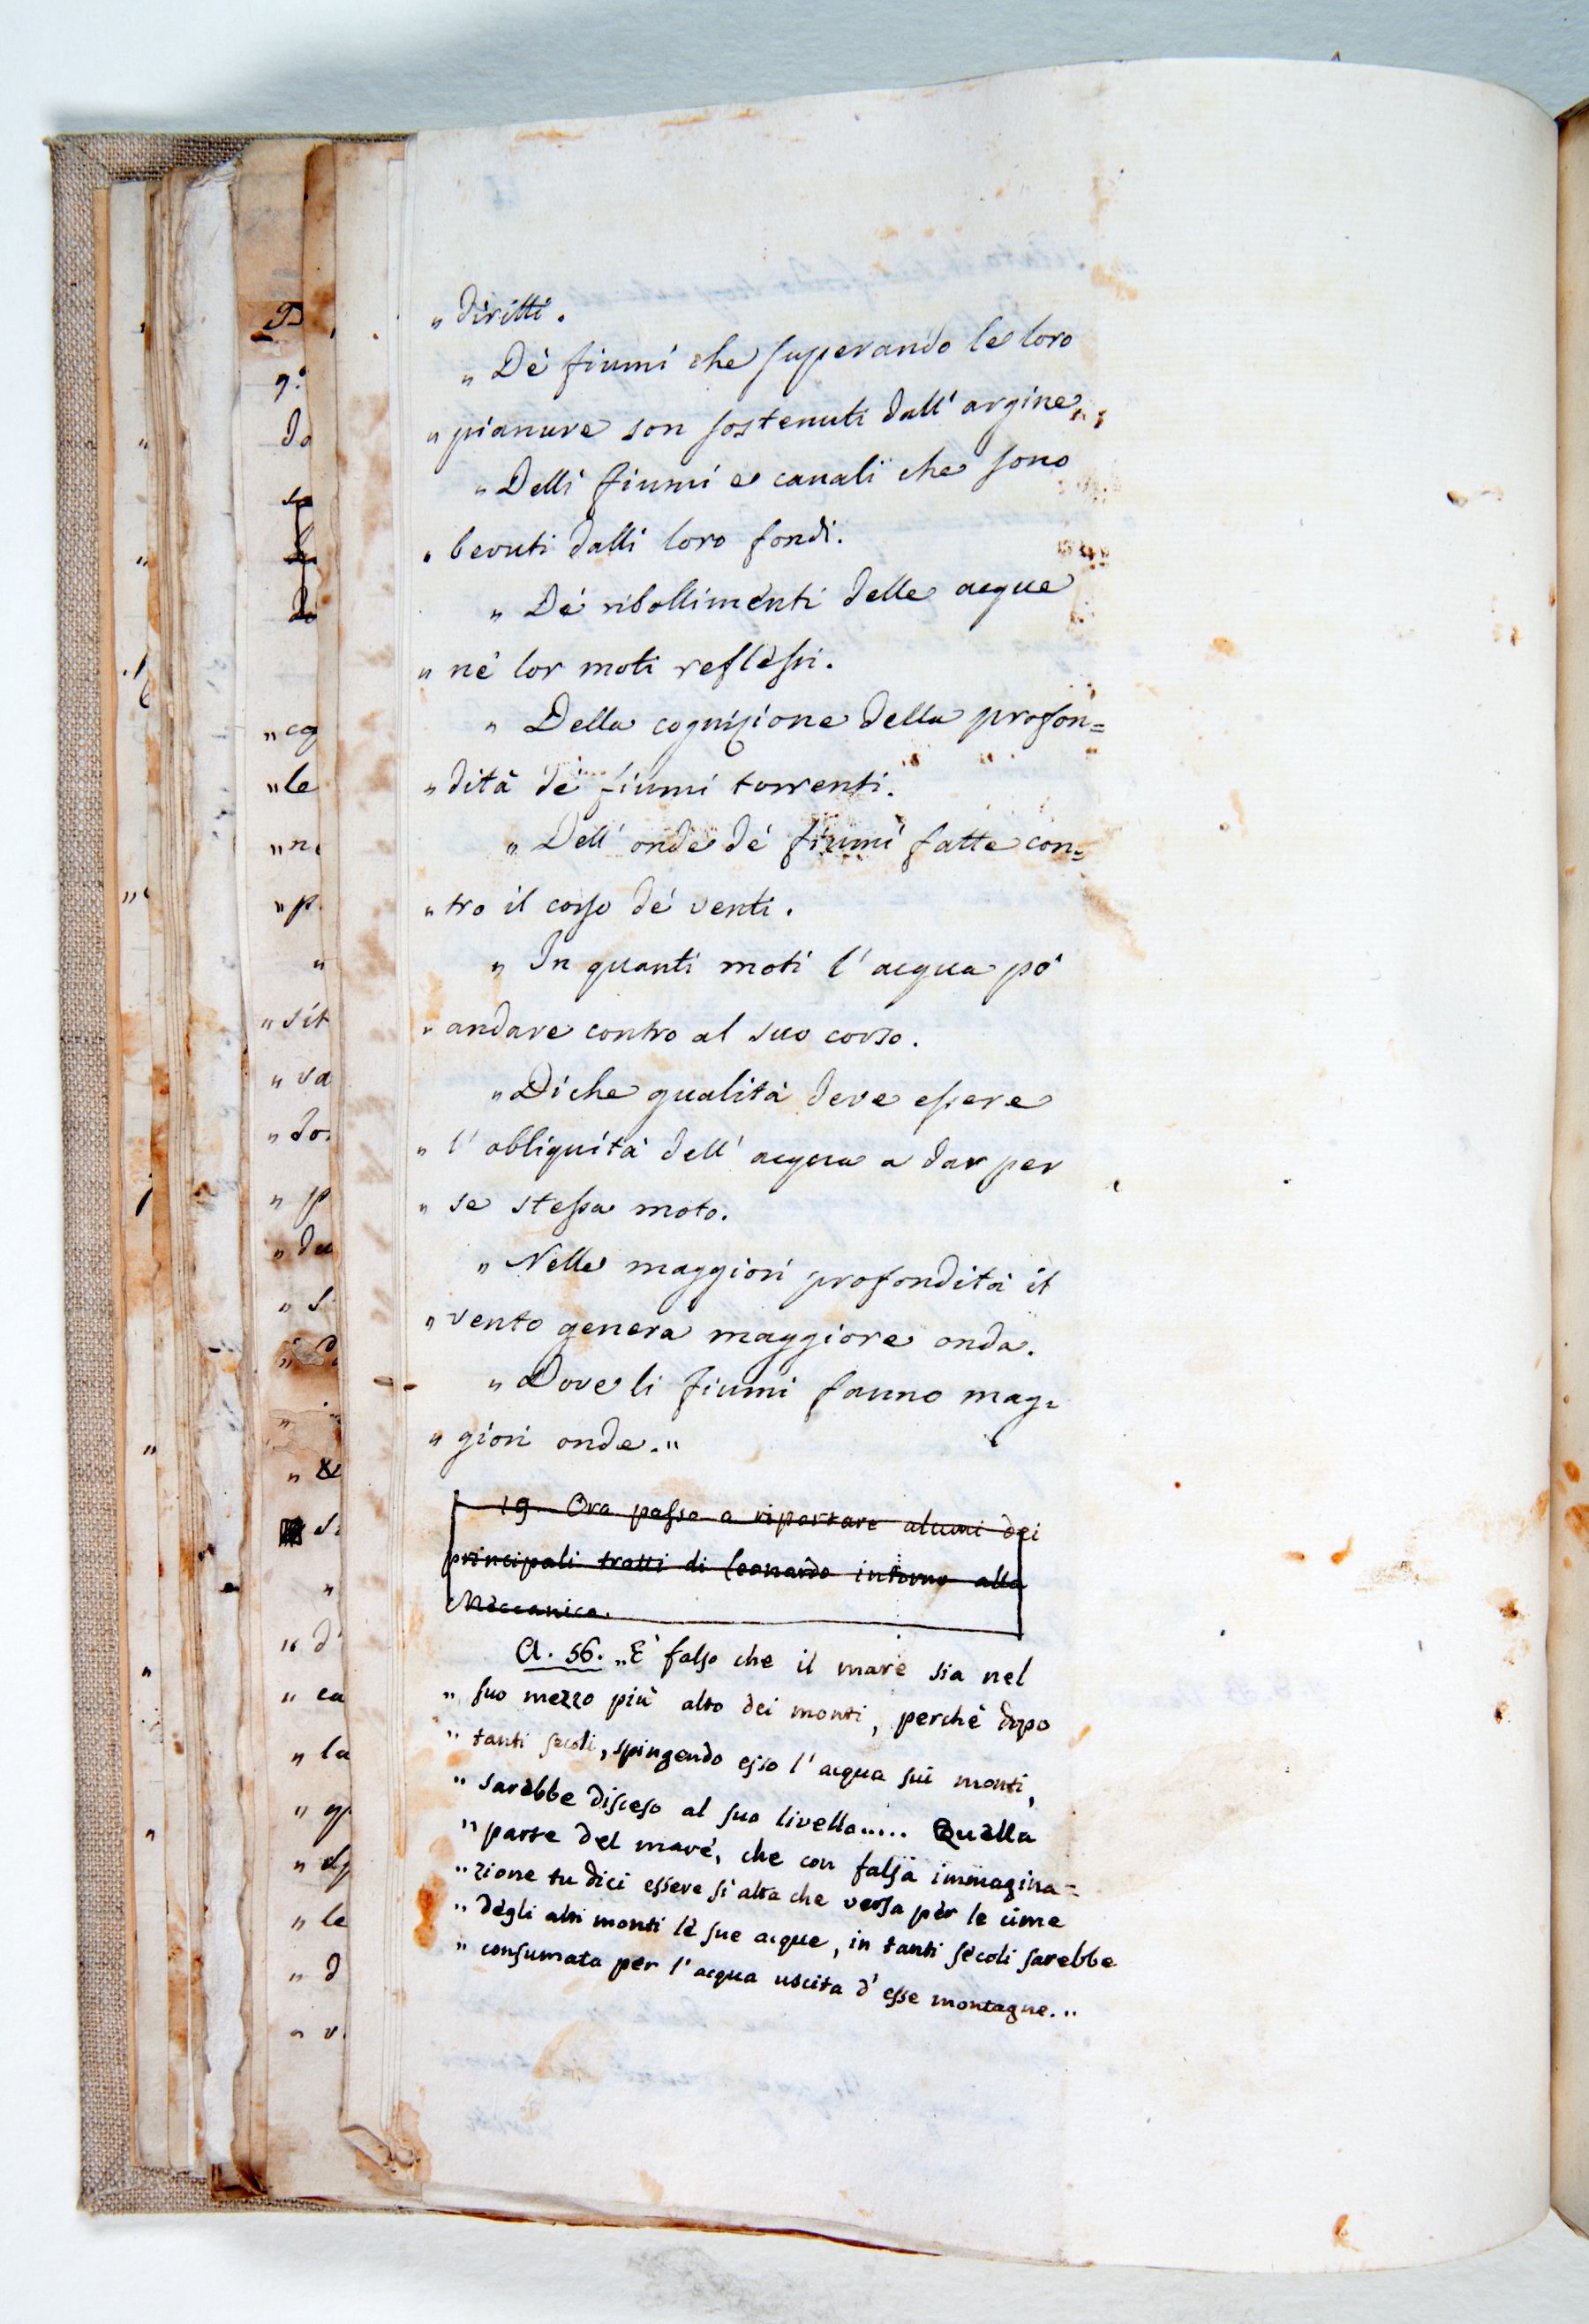 „ diritti.
„ De' fiumi che superando le loro
„ pianure son sostenuti dall' argine.
„ Delli fiumi e canali che sono
„ bevuti dalli loro fondi.
„ De' ribollimenti delle acque
„ ne' lor moti reflessi.
„ Della cognizione della profon=
„ dità de' fiumi torrenti.
„ Dell' onde de' fiumi fatte con=
„ tro il corso de' venti.
„ In quanti moti l' acqua pò
„ andare contro al suo corso.
„ Di che qualità deve essere
„ l' obliquità dell' acqua a dar per
„ se stessa moto.
„ Nelle maggiori profondità il
„ vento genera maggiore onda.
„ Dove li fiumi fanno mag=
„ giori onde."
19. Ora passo a riportare alcuni dei
principali tratti di Leonardo intorno alla
Meccanica.
A. 56. „ È falso che il mare sia nel
„ suo mezzo più alto dei monti, perchè dopo
„ tanti secoli, spingendo esso l' acqua sui monti,
„ sarebbe disceso al suo livello..... Quella
„ parte del mare, che con falsa immagina=
„ zione tu dici essere sì alta che versa per le cime
„ degli alti monti le sue acque, in tanti secoli sarebbe
„ consumata per l' acqua uscita d' esse montagne."